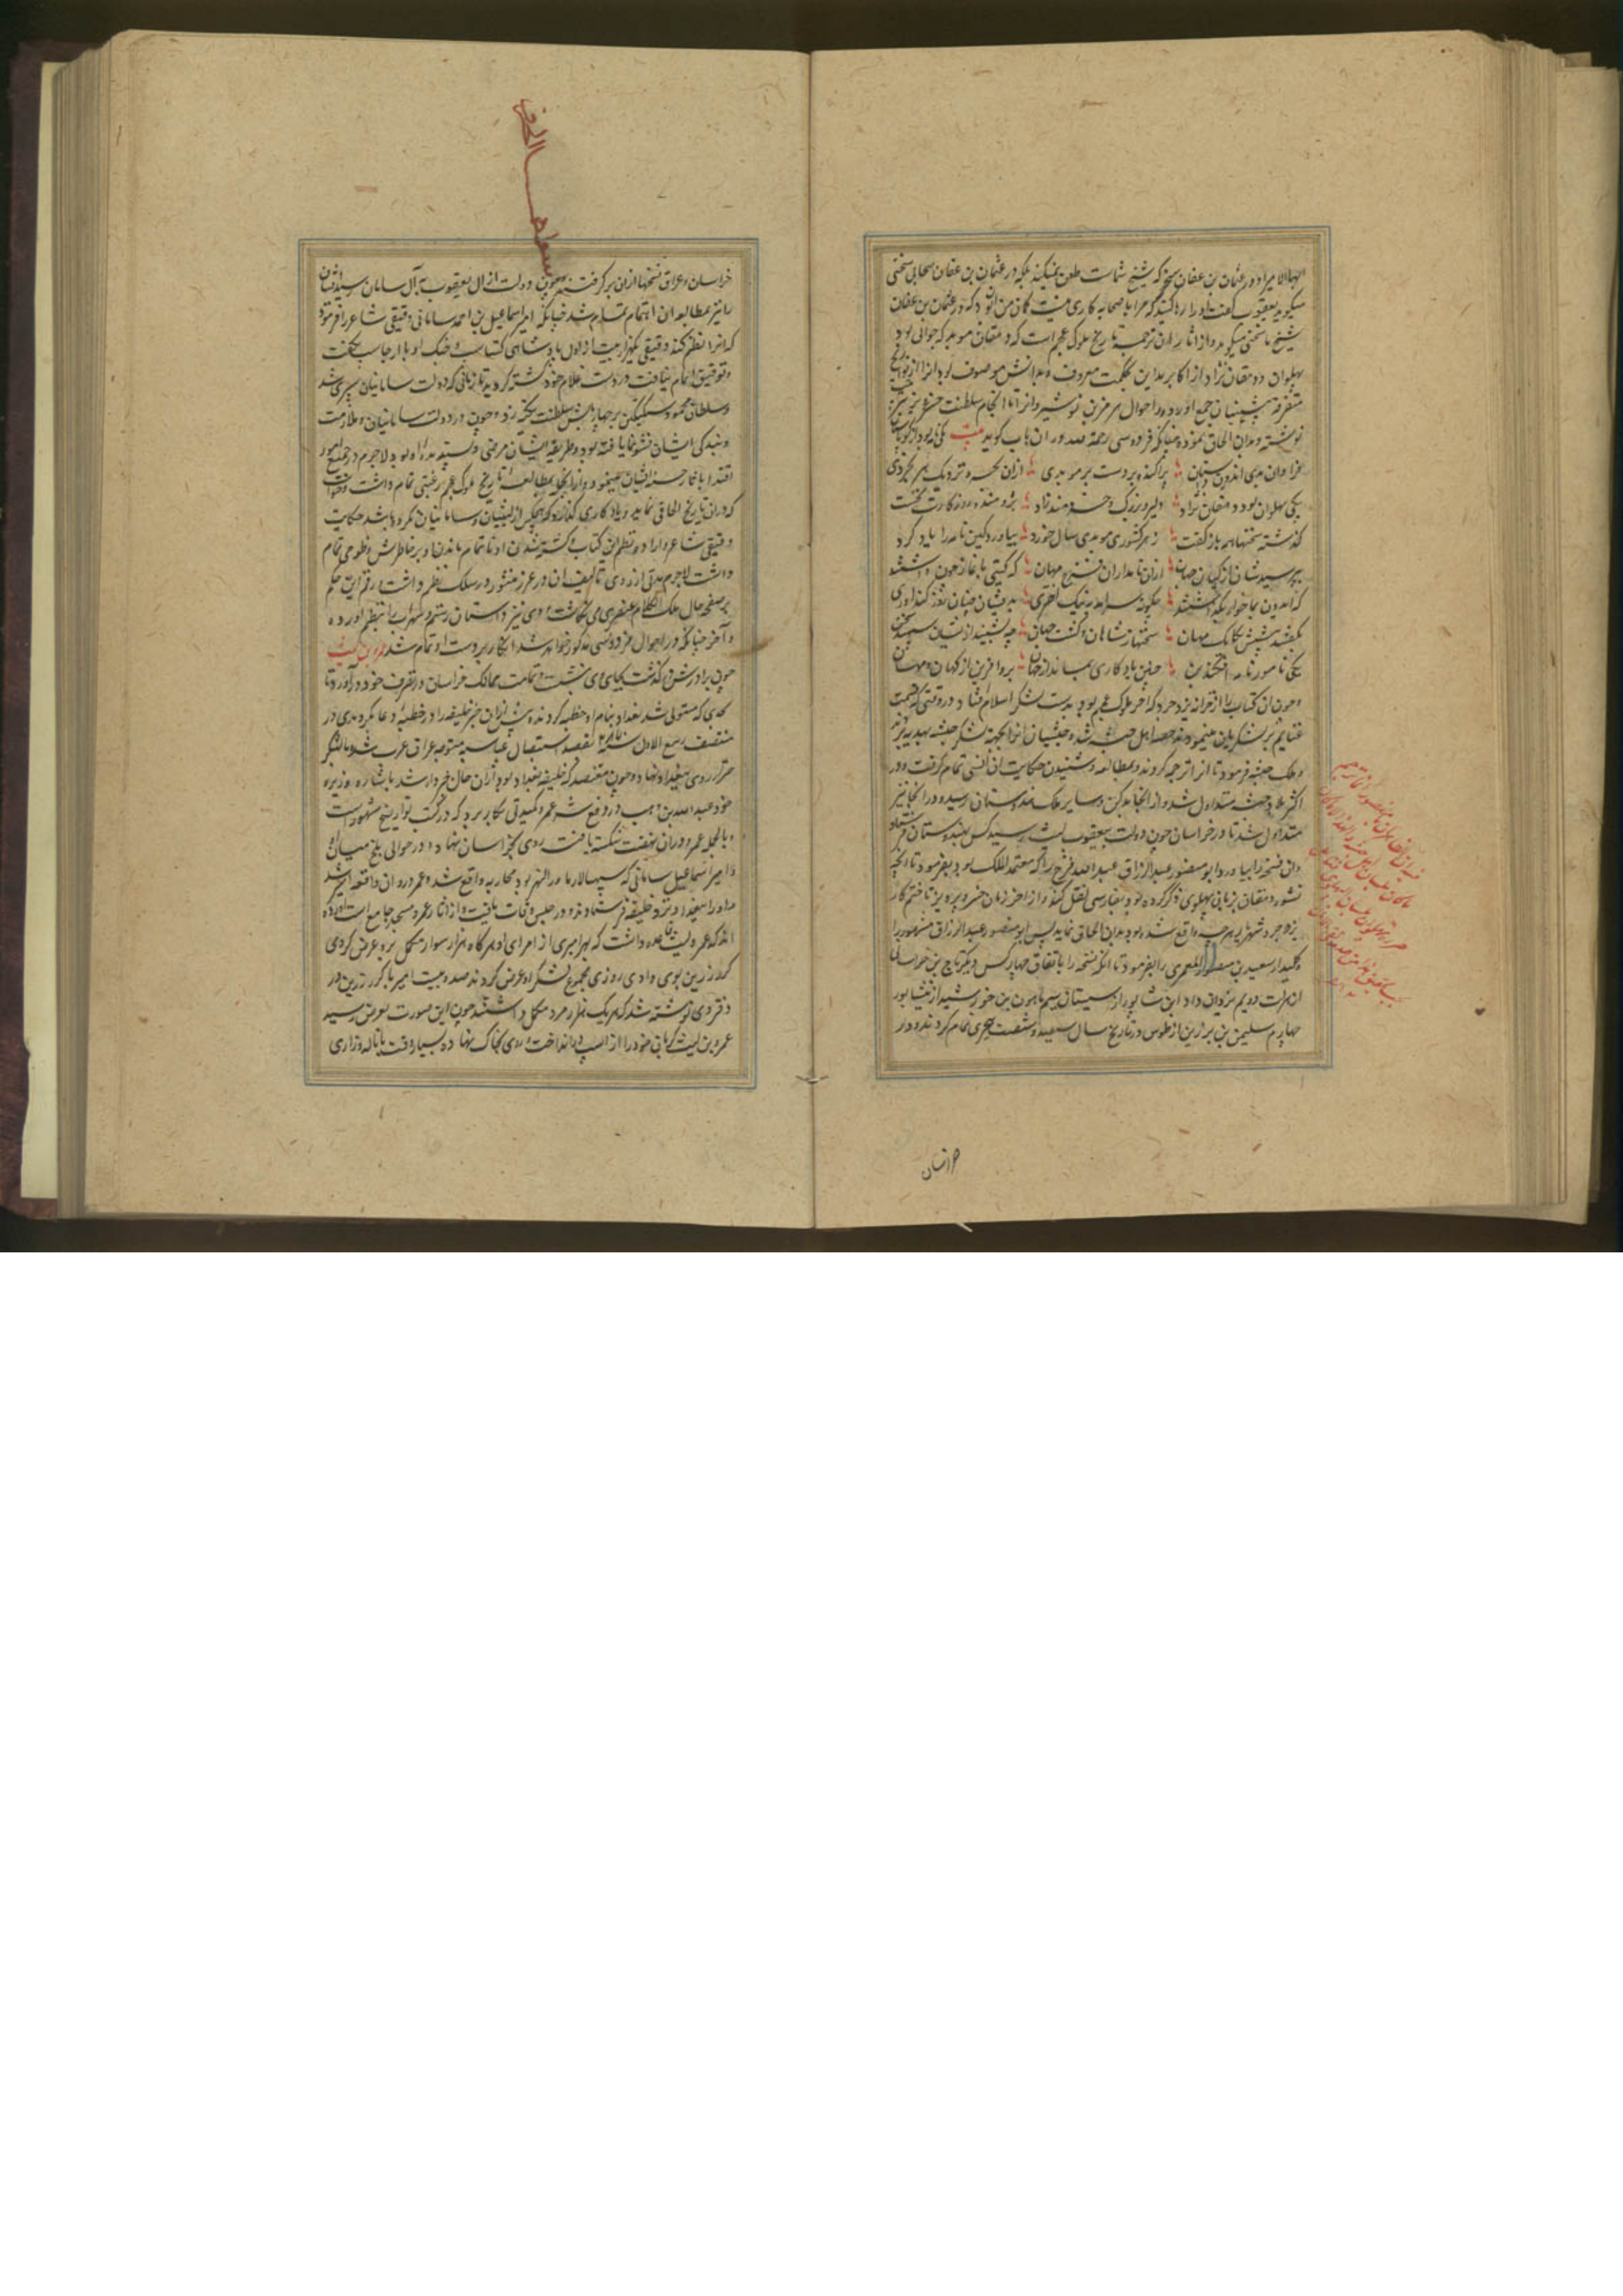 ایها الامیر او در عثمان بن عفان سجزی که شیخ شماست طعن نمیکند بلکه در عثمان بن عفان صحابی سخنی
میکوید یعقوب کفت او را رها کنید که مرا با صحابه کاری نیست کمان من آن بود که در عثمان بن عفان
شیخ ما سخنی میکوید و از آثار او ترجمه تاریخ ملوک عجم است که دهقان موبد که جوانی بود
پهلوان و دهقان نژاد از اکابر مداین بحکمت معروف و بدانش موصوف کوید انرا از تواریخ
متفرقه پیشینیان جمع اورده و در احوال هرمز بن نوشیروان تا انجام سلطنت خسرو پرویز
نوشته و بدان الحاق نموده چنانکه فردوسی رحمه الله در ان باب کوید بیت یکی نامه بود از که باستان
فراوان بدی اندرون داستان پراکنده بر دست هر موبدی ازان بهره نزدیک هر بخردی
یکی پهلوان بود دهقان نژاد دلیر و بزرک و خردمند و راد پژوهنده روزکار نخست
کذشته سخنها همه باز جست ز هر کشوری موبدی سال خورد بیاورد کین نامه را یاد کرد
بپرسیدشان از کیان جهان ازان نامداران فرخ مهان که کیتی باغاز چون داشتند
که ایدون بما خوار بکذاشتند چکونه سرامد به نیک اختری بریشان چنان روز کنداوری
بکفتند پیشش یکایک مهان سخنها ز شاهان و کشت جهان چو بشنید ازیشان سپهبد سخن
یکی نامور نامه افکند بن چنین یادکاری بماند از جهان برو افرین از کهان و مهان
و چون ان کتاب را از خزانه یزدجرد که اخر ملوک عجم بود بدست لشکر اسلام افتاد و در وقتی که قسمت
غنایم بر لشکریان مینمودند حصه اهل حبشه شده حبشیان انرا بجهة لشکر حبشه بهدیه بردند
و ملک حبشه فرمود تا انرا ترجمه کردند و بمطالعه و شنیدن حکایت ان انسی تمام کرفت و در
اکثر بلاد حبشه متداول شد و از انجا بدکن و سایر ملک هندوستان رسید و در انجا نیز
متداول شد تا در خراسان چون دولت بیعقوب لیث رسید کس بهندوستان فرستاد
و ان نسخه را بیاورد و ابو منصور عبدالرزاق عبدالله فرخ را که معتمد الملک بود بفرمود تا انچه
دانشور دهقان بزبان پهلوی ذکر کرده بود بفارسی نقل کند و از اخر زمان خسرو پرویز تا ختم کار
یزدجرد شهریار هرچه واقع شده بود بدان الحاق نماید پس ابو منصور عبدالرزاق
وکیل از سعید بن منصور المعمری را بفرمود تا انکه نسخه را باتفاق چهار کس دیکر تاج بن خراسانی
از هرات دویم یزدان داد ابن شاپور از سیستان سیم ماهوی بن خورشید از نیشابور
چهارم سلیمن بن برزین از طوس در تاریخ سال سیصد و شصت هجری تمام کردند و در
خراسان
خراسان و عراق نسخها ازان بر کرفتند و چون دولت از ال یعقوب به آل سامان رسید ایشان
را نیز بمطالعه ان اهتمام تمام شد چنانکه امیر اسماعیل بن احمد سامانی دقیقی شاعر را فرمود
که انرا نظم کند دقیقی یکهزار بیت از اول پادشاهی کشتاسب و جنک او با ارجاسب بکفت
و توفیق اتمام نیافت و بر دست غلام خود کشته کردید تا زمانی که دولت سامانیان سپری شد
و سلطان محمود سبکتکین بر چهار بالش سلطنت تکیه زد و چون در دولت سامانیان و ملازمت
و بندکی ایشان نشو و نما یافته بود و طریقه ایشان مرضی و پسندیده او بود لاجرم در جمیع امور
اقتدا باثار حسنه ایشان مینمود و از انجا بمطالعه تاریخ ملوک عجم رغبتی تمام داشت و خواست
که دران تاریخ الحاقی نماید و یادکاری کذارد که هیچکس از لیثیان و سامانیان نکرده باشد حکایت
دقیقی شاعر و اراده نظم این کتاب و کشته شدن او و ناتمام ماندن او بر خاطرش خطوری تمام
داشت لاجرم مدتی از روی تالیف ان در عرز منثور در سلک نظم داشت و رقم این حکم
بر صفحه حال ملک الکلام عنصری می نکاشت و وی نیز داستان رستم و سهراب را بنظم اورده
و آخر چنانکه در احوال فردوسی مذکور خواهد شد انکار بر دست او تمام شد عمرو بن لیث
چون برادرش درکذشت بجای وی بنشست و تمامت ممالک خراسان در تصرف خود در آورد تا
بحدی که مستولی شد بغداد بنام او خطبه کردند و پیش ازان جز خلیفه را در خطبه دعا نکردندی در
منتصف ربیع الاول سنه ۲۸۷ بقصد استیصال عباسیه متوجه عراق عرب شد و با لشکر
جرار روی ببغداد نهاد و چون معتضد که خلیفه بغداد بود ازان حال خبردار شد باشاره وزیر
خود عبدالله بن وهب در دفع شر عمرو کیدی بکار برد که در کتب تواریخ مشهور است
و بالجمله عمرو دران نهضت شکست یافت روی بخراسان نهاد و در حوالی بلخ میان او
و امیر اسماعیل سامانی که سپهسالار ماوراالنهر بود محاربه واقع شد و عمرو دران واقعه اسیر شد
و او را ببغداد نزد خلیفه فرستادند و در حبس وفات یافت و از اثار عمرو مسجد جامع است اورده
اند که عمرو لیث قاعده داشت که هر امیری از امرای او هرکاه هزار سوار مکمل برو عرض کردی
کرز زرین بوی دادی روزی مجموع لشکر او عرض کردند صد و بیست امیر با کرز زرین در
دفتر وی نوشته شد که هر یک هزار مرد مکمل داشتند چون این صورت بعرض رسید
عمرو بن لیث کریان خود را از اسب در انداخت و روی بخاک نهاد و بسیار وقت با ناله و زاری